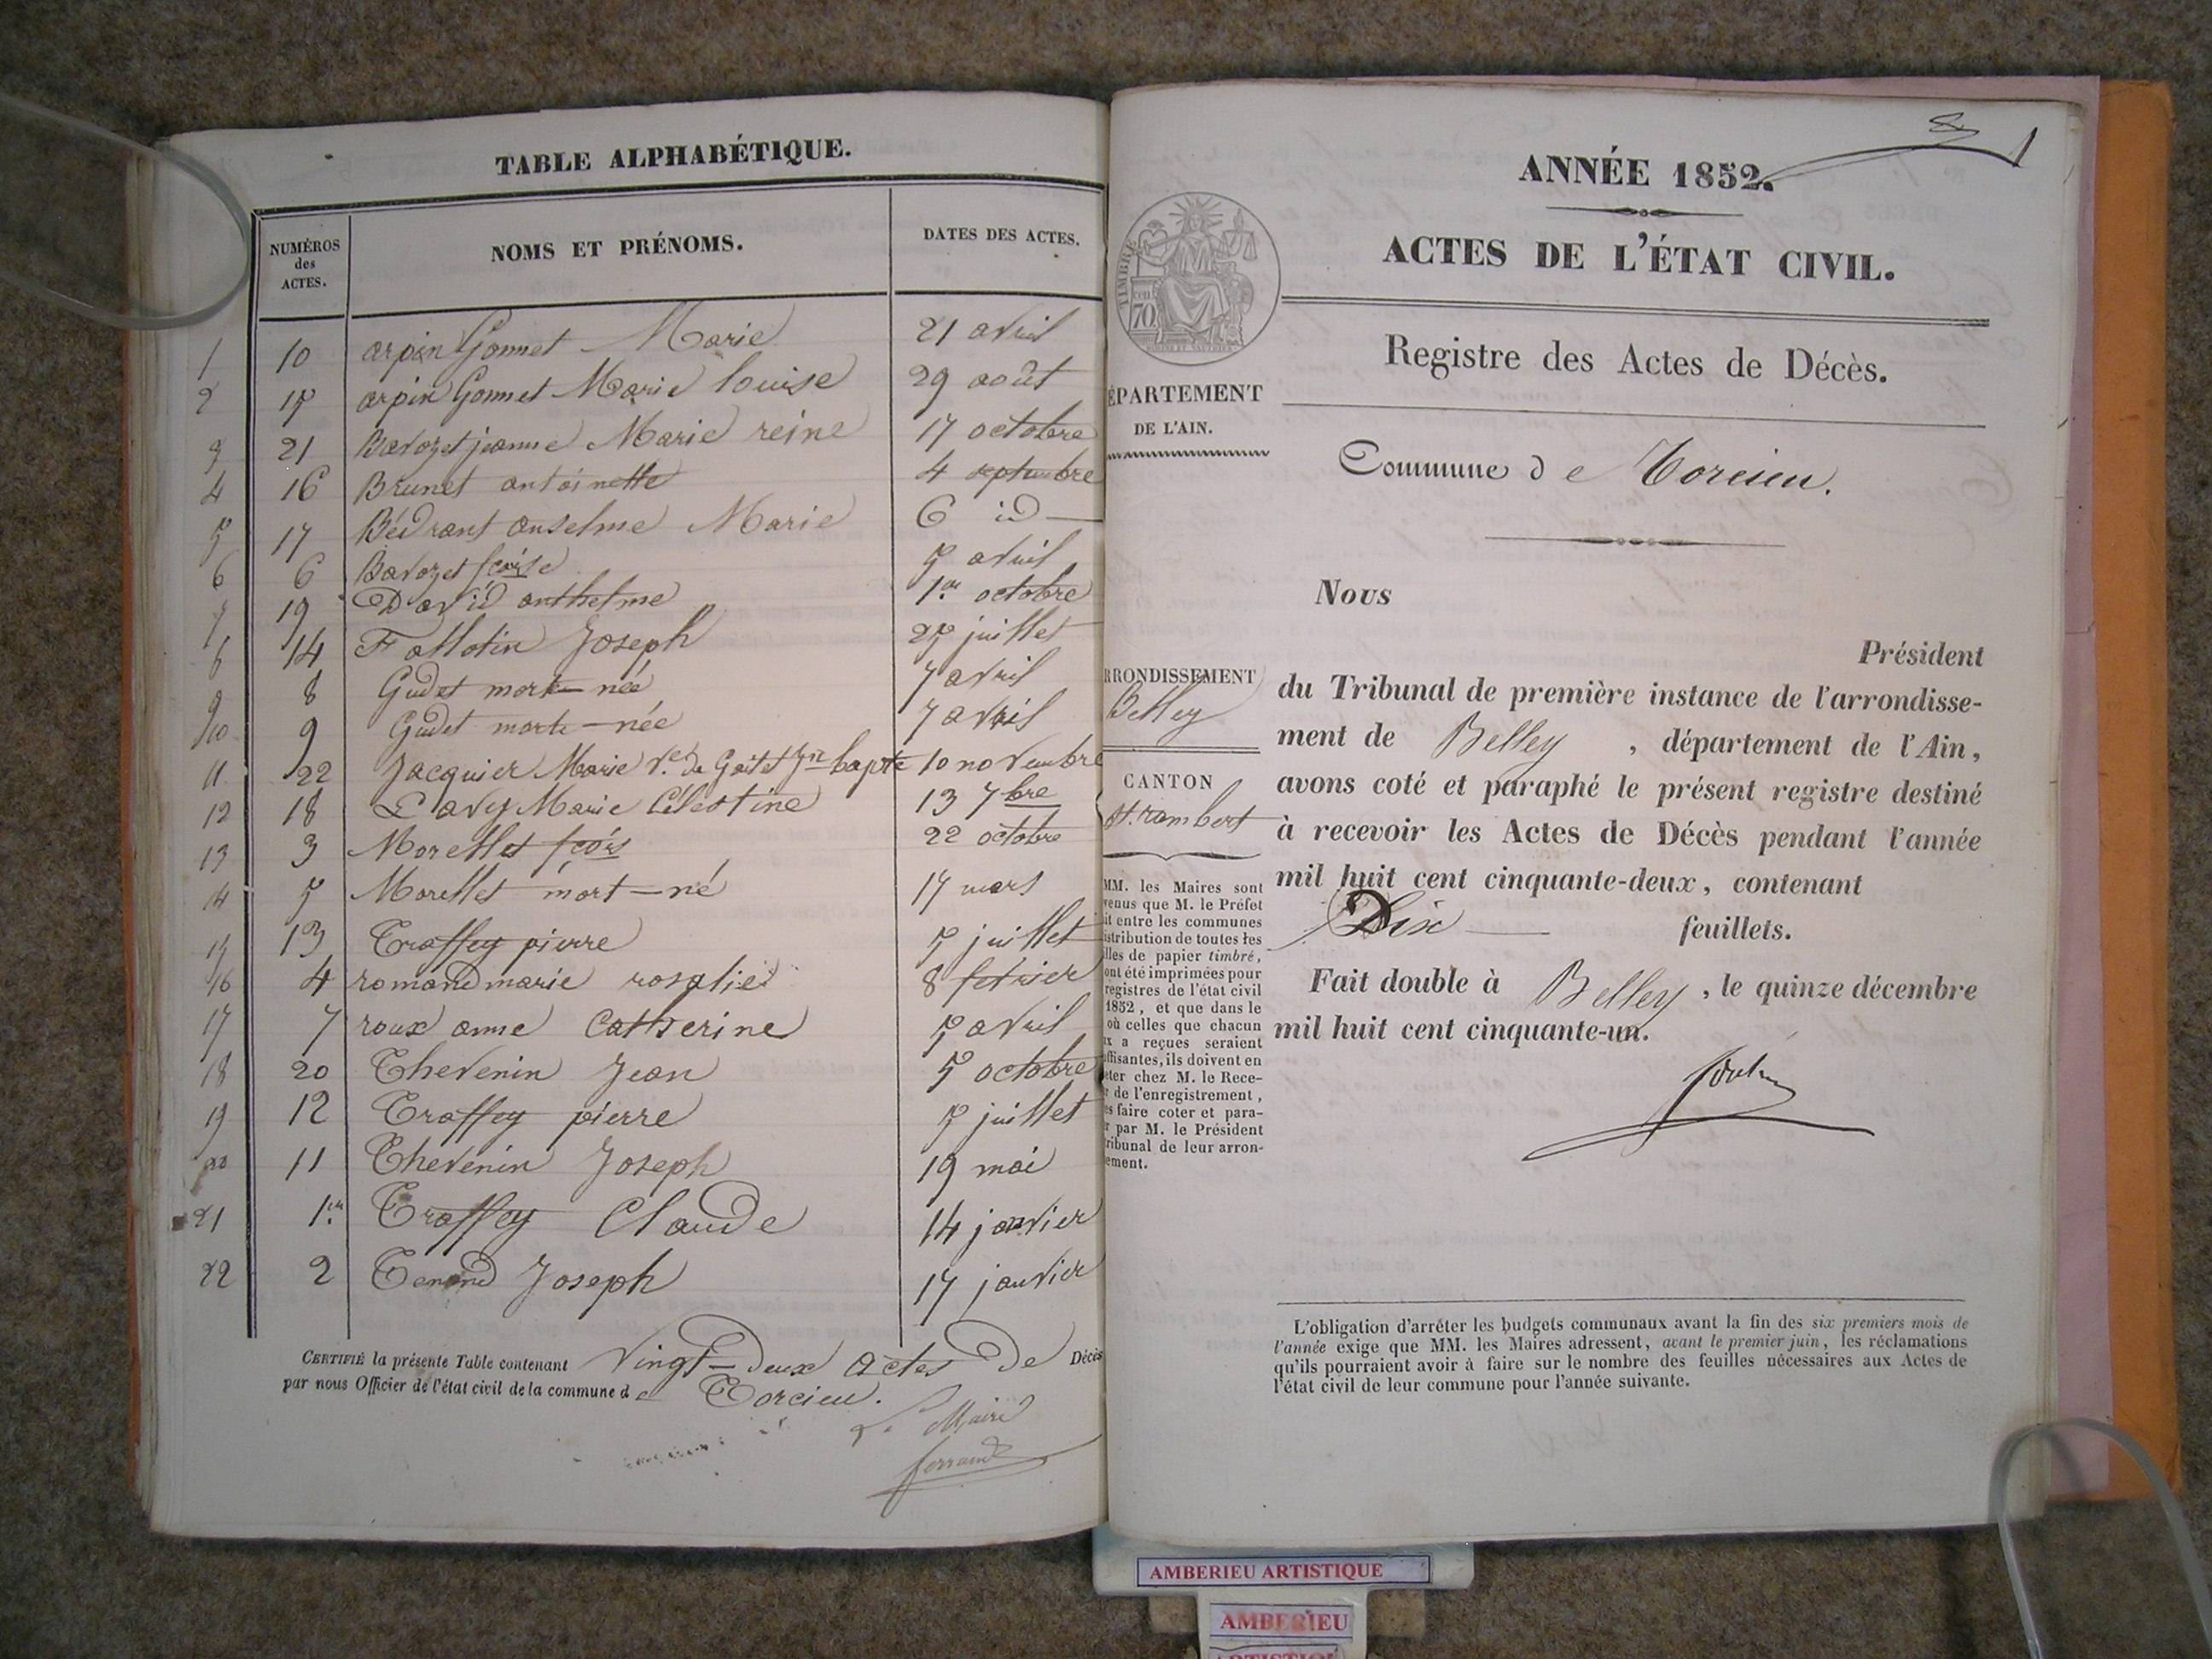 TABLE ALPHABÉTIQUE.
NUMÉROS des ACTES.
NOMS ET PRÉNOMS.
DATES DES ACTES.
1 10 arpin Gonnet Marie 21 avril
2 15 arpin Gonnet Marie louise 29 août
3 21 Bavozet jeanne Marie reine 17 octobre
4 16 Brunet antoinette 4 septembre
5 17 Bédrant anselme Marie 6 id
6 6 Bavozet fçoise 5 avril
7 19 David anthelme 1er octobre
8 14 Fallotin Joseph 25 juillet
9 8 Gudet morte-née 7 avril
10 9 Gudet morte-née 7 avril
11 22 Jacquier Marie Ve de Goitet Jn bapte 10 novembre
12 18 Lavy Marie Célestine 13 7bre
13 3 Morellet fçois 22 octobre
14 5 Morellet mort-né 17 mars
15 13 Traffey pierre 5 juillet
16 4 romand marie rosalie 8 fevrier
17 7 roux anne Catherine 5 avril
18 20 Thevenin Jean 5 octobre
19 12 Traffey pierre 5 juillet
20 11 Thevenin Joseph 19 mai
21 1er Traffey Claude 14 janvier
22 2 Tenand Joseph 17 janvier
CERTIFIÉ la présente Table contenant Vingt-deux actes de Décès
par nous Officier de l'état civil de la commune de Torcieu.
Le Maire
ferrand
ANNÉE 1852.
ACTES DE L'ÉTAT CIVIL.
TIMBRE
cen
70
Registre des Actes de Décès.
ÉPARTEMENT
DE L'AIN.
Commune de Torcieu.
Nous
Président
RRONDISSEMENT
Belley
du Tribunal de première instance de l'arrondisse-
ment de Belley, département de l'Ain,
CANTON
St. rambert
avons coté et paraphé le présent registre destiné
à recevoir les Actes de Décès pendant l'année
mil huit cent cinquante-deux, contenant
Dix feuillets.
Fait double à Belley, le quinze décembre
mil huit cent cinquante-un.
MM. les Maires sont
venus que M. le Préfet
it entre les communes
istribution de toutes les
illes de papier timbré,
ont été imprimées pour
registres de l'état civil
1852, et que dans le
où celles que chacun
ux a reçues seraient
ffisantes, ils doivent en
eter chez M. le Rece-
r de l'enregistrement,
es faire coter et para-
r par M. le Président
ribunal de leur arron-
ement.
L'obligation d'arrêter les budgets communaux avant la fin des six premiers mois de
l'année exige que MM. les Maires adressent, avant le premier juin, les réclamations
qu'ils pourraient avoir à faire sur le nombre des feuilles nécessaires aux Actes de
l'état civil de leur commune pour l'année suivante.
AMBERIEU ARTISTIQUE
AMBERIEU
ARTISTIQUE